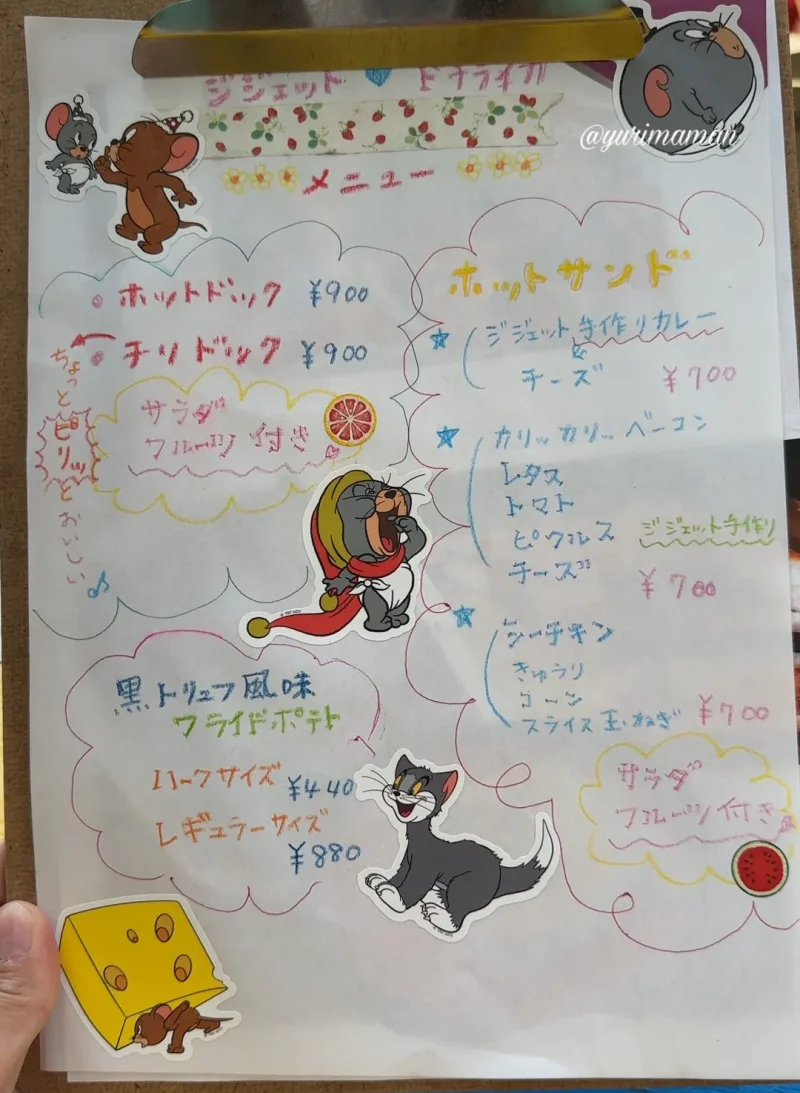 ジジェット ドライブイン
@yurimaman
メニュー
ホットドック ¥900
チリドック ¥900
ちょっとピリッとおいしい
サラダ
フルーツ付き
黒トリュフ風味
フライドポテト
ハーフサイズ ¥440
レギュラーサイズ
¥880
ホットサンド
ジジェット手作りカレー
&
チーズ ¥700
カリッカリッベーコン
レタス
トマト
ピクルス ジジェット手作り
チーズ ¥700
シーチキン
きゅうり
コーン
スライス玉ねぎ ¥700
サラダ
フルーツ付き